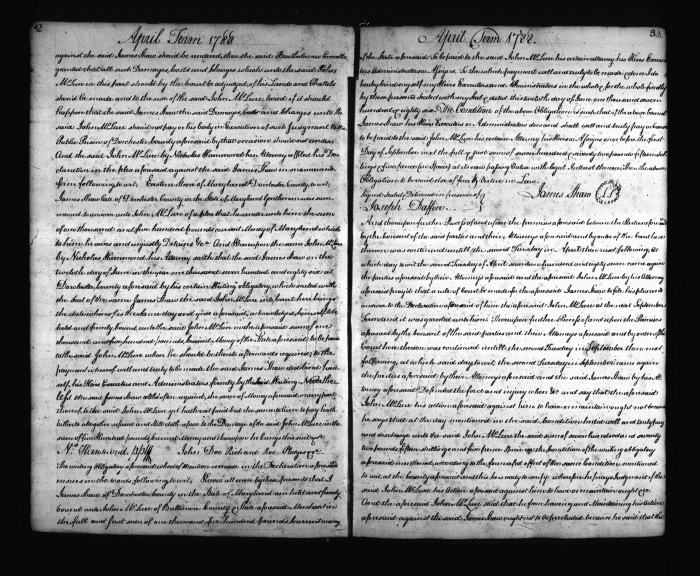 April Term 1788
against the said James Shaw should be rendered, then the said Bartholomew Ennalls
granted that all such Damages, Costs and Charges which unto the said John
McLure in this part should by the Court be adjudged of his Lands and Chattels
should be made and to the use of the said John McLure levied if it should
happen that the said James Shaw the said Damages Costs and Charges unto the
said John McLure should not pay or his body in Execution of such Judgment to the
Public Prison of Dorchester County aforesaid by that occasion should not render
And the said John McLure by Nicholas Hammond his Attorney affiled his De-
claration in the plea aforesaid against the said James Shaw in manner and
form following to wit, Eastern Shore of Maryland Dorchester County to wit,
James Shaw late of Dorchester County in the State of Maryland Gentleman was sum-
moned to answer unto John McLure of a plea that he render unto him the sum
of one thousand and five hundred pounds current Money of Maryland which
to him he owes and unjustly Detains &c And Whereupon the same John McLure
by Nicholas Hammond his Attorney saith that the said James Shaw on the
twelfth day of June in the year one thousand seven hundred and eighty six at
Dorchester County aforesaid by his certain Writing obligatory, which sealed with
the Seal of the same James Shaw the said John McLure into Court here brings
the date whereof is the same day and year aforesaid, acknowledged himself to be
held and firmly bound unto the said John McLure in the aforesaid sum of one
thousand and five hundred pounds, current Money of the State aforesaid to be paid
to the said John McLure when he should be thereto afterwards required, to the
payment whereof well and truly to be made the said James Shaw did bind him-
self, his Heirs Executors and Administrators firmly by the said Writing Neverthe-
less the said James Shaw altho' often required, the sum of Money aforesaid or any part
thereof, to the said John McLure yet hath not paid but the same to him to pay hath
hitherto altogether refused and still doth refuse to the Damage of the said John McLure in the
sum of five Hundred pounds current Money and therefore he brings this suit &c
Ns. Hammond pr Plff John Doe Richard Roe Pledges &c
The writing obligatory aforesaid whereof mention is made in the Declaration aforesaid re-
mains in the words following to wit, Know all men by these presents that I
James Shaw of Dorchester County in the State of Maryland am held and firmly
bound unto John McLure of Baltimore County & State aforesaid Merchant in
the full and just sum of one thousand five hundred pounds current money
April Term 1788.
of the State aforesaid To be paid to the said John McLure his certain attorney his Heirs Execu-
tors Administrators or Assigns. To the which payment well and truly to be made & done I do
bind myself my Heirs Executors and Administrators in the whole & for the whole firmly
by these presents sealed with my seal & dated this twelfth day of June one thousand seven
hundred & eighty six The Condition of the above Obligation is such that if the above bound
James Shaw his Heirs Executors or Administrators do and shall well and truly pay or cause
to be paid to the said John McLure his certain Attorney his Heirs or Assigns on or before the first
Day of September next the full & just sum of seven hundred & seventy two pounds fifteen shil-
lings & five pence
Obligation to be void else of force & virtue in Law
Signed Sealed & Delivered in presence of James Shaw
Joseph Daffin
And thereupon further Process of and upon the premises aforesaid between the Parties aforesaid
by the consent of the said parties and their Attorneys aforesaid and by order of the Court here
thereon was continued until the second Tuesday in April then next following At
which day to wit the second Tuesday of April seventeen hundred and eighty seven came again
the parties aforesaid by their Attorneys aforesaid and the aforesaid John McLure by his Attorney
aforesaid prayeth that a rule of Court be made for the aforesaid James Shaw to fix his plea and
answer to the Declaration aforesaid of him the aforesaid John McLure at the next September
Term and it was granted unto him Thereupon further Process of and upon the Premises
aforesaid by the consent of the said parties and their Attorneys aforesaid and by order of the
Court here thereon was continued until the second Tuesday in September then next
following, at which said day to wit, the second Tuesday in September came again
the parties aforesaid by their Attorneys aforesaid and the said James Shaw by his At-
torney aforesaid Defended the force and injury when &c and say that the aforesaid
John McLure his action aforesaid against him to have or maintain ought not because
he says that at the day mentioned in the said Condition he did well and truly pay
and discharge unto the said John McLure the said sum of seven hundred and seventy
two pounds fifteen shillings and five pence Specie in the Condition of the writing obligatory
aforesaid mentioned, according to the form and effect of the same Condition mentioned
to wit, at the County aforesaid and this he is ready to verify wherefore he prays Judgment if the
said John McLure his Action aforesaid against him to have or maintain ought &c
And the aforesaid John McLure said that he from having and Maintaining his Action
aforesaid against the said James Shaw ought not to be precluded because he said that the